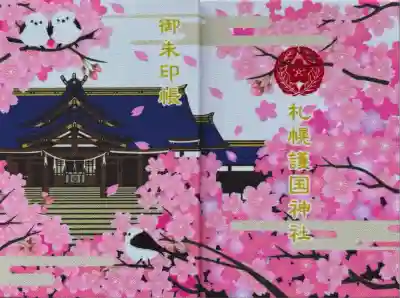 札幌護国神社
御朱印帳